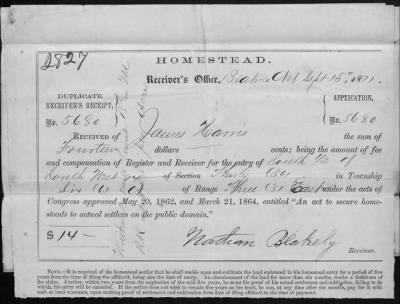 2827
HOMESTEAD.
Receiver's Office, Beatrice Neb Sept 15th, 1871.
DUPLICATE
RECEIVER'S RECEIPT,
No. 5680
APPLICATION,
No. 5680
RECEIVED OF James Harris the sum of
Fourteen dollars cents; being the amount of fee
and compensation of Register and Receiver for the entry of South ½ of
South West ¼ of Section Thirty in Township
Six (6) of Range Three (3) East under the acts of
Congress approved May 20, 1862, and March 21, 1864, entitled "An act to secure home-
steads to actual settlers on the public domain."
$ 14—
Nathan Blakely
Receiver.
NOTE.—It is required of the homestead settler that he shall reside upon and cultivate the land embraced in his homestead entry for a period of five
years from the time of filing the affidavit, being also the date of entry. An abandonment of the land for more than six months, works a forfeiture of
claim. Further, within two years from the expiration of the said five years, he must file proof of his actual settlement and cultivation, failing to do
which, his entry will be canceled. If the settler does not wish to remain five years on his tract, he can, at any time after six months, pay for it with
cash or land warrants, upon making proof of settlement and cultivation from date of filing affidavit to the time of payment.